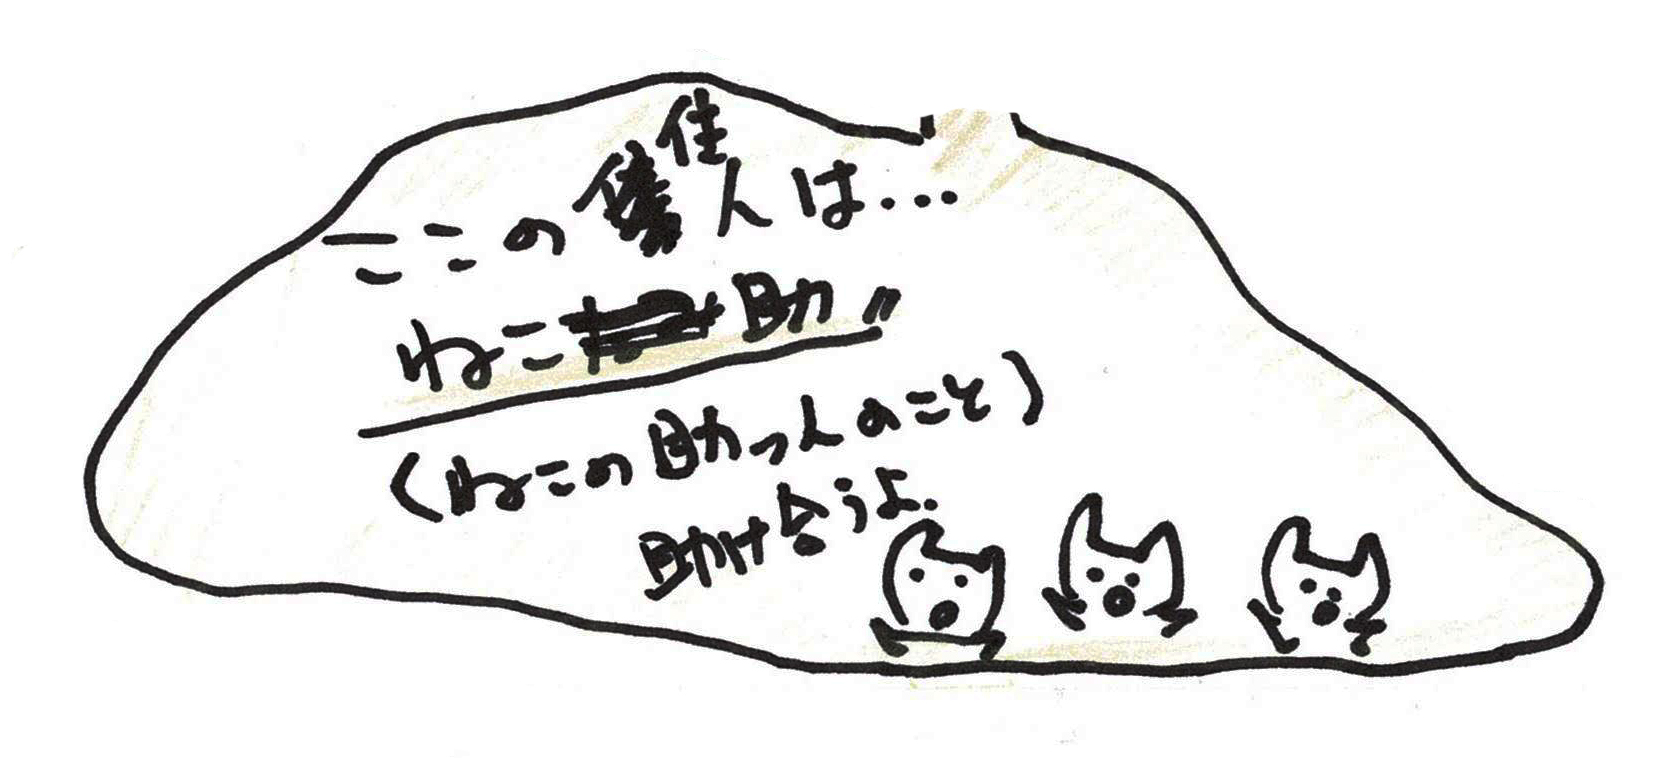 ここの住人は...
ねこ助〃
(ねこの助っ人のこと)
助け合うよ.